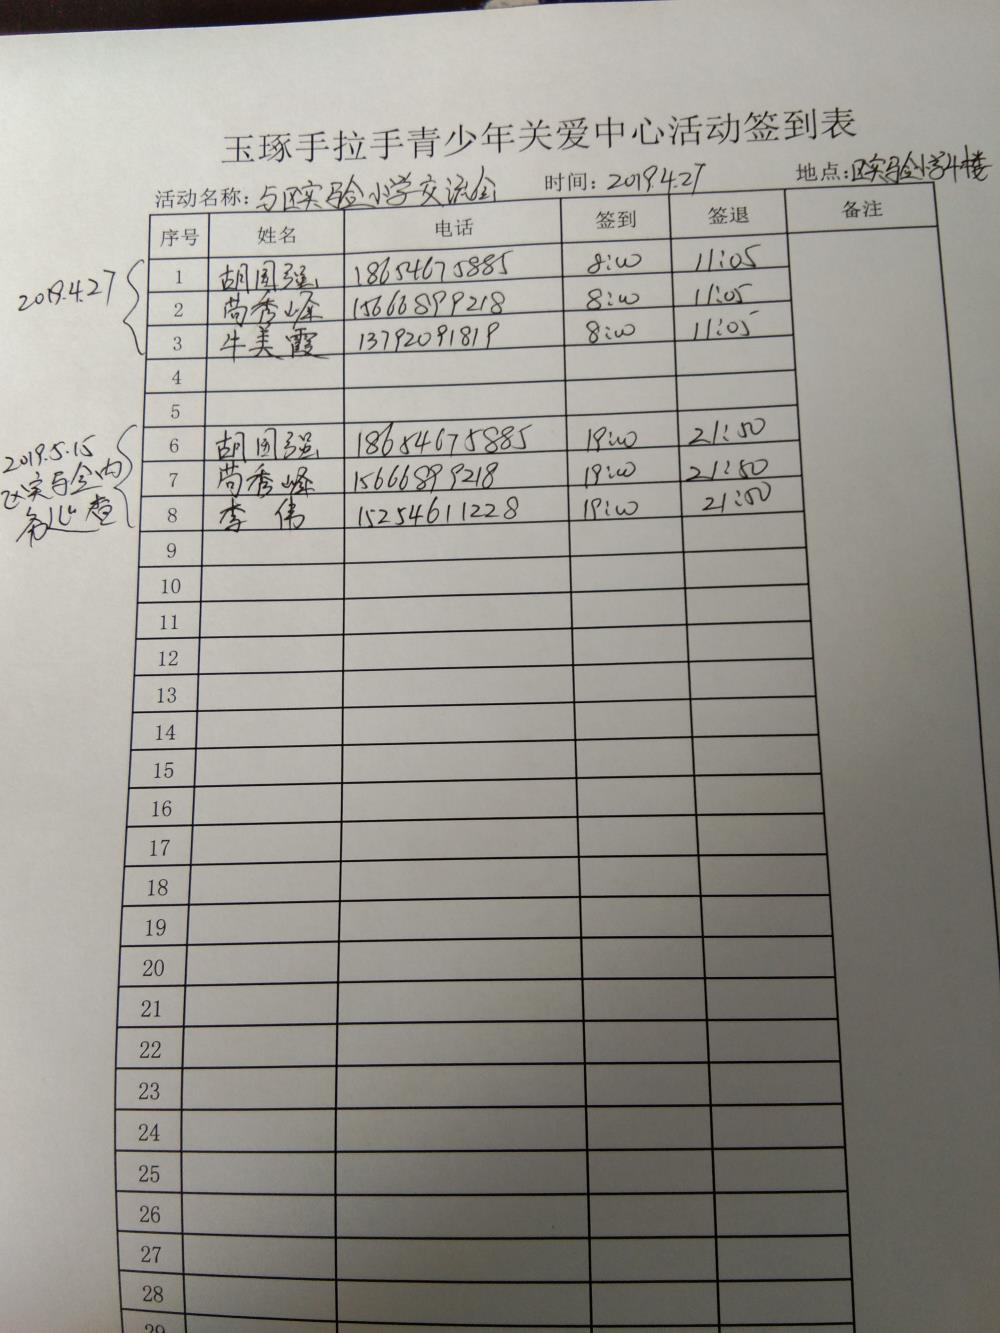 玉琢手拉手青少年关爱中心活动签到表
活动名称:与区实验小学交流会 时间:2019.4.27 地点:区实验小学4楼
序号 姓名 电话 签到 签退 备注
2019.4.27
1 胡国强 18654675885 8:00 11:05
2 苘秀峰 15666899218 8:00 11:05
3 牛美霞 13792091819 8:00 11:05
4
5
2019.5.15
区实验
6 胡国强 18654675885 19:00 21:50
7 苘秀峰 15666899218 19:00 21:50
8 李伟 15254611228 19:00 21:50
9
10
11
12
13
14
15
16
17
18
19
20
21
22
23
24
25
26
27
28
29